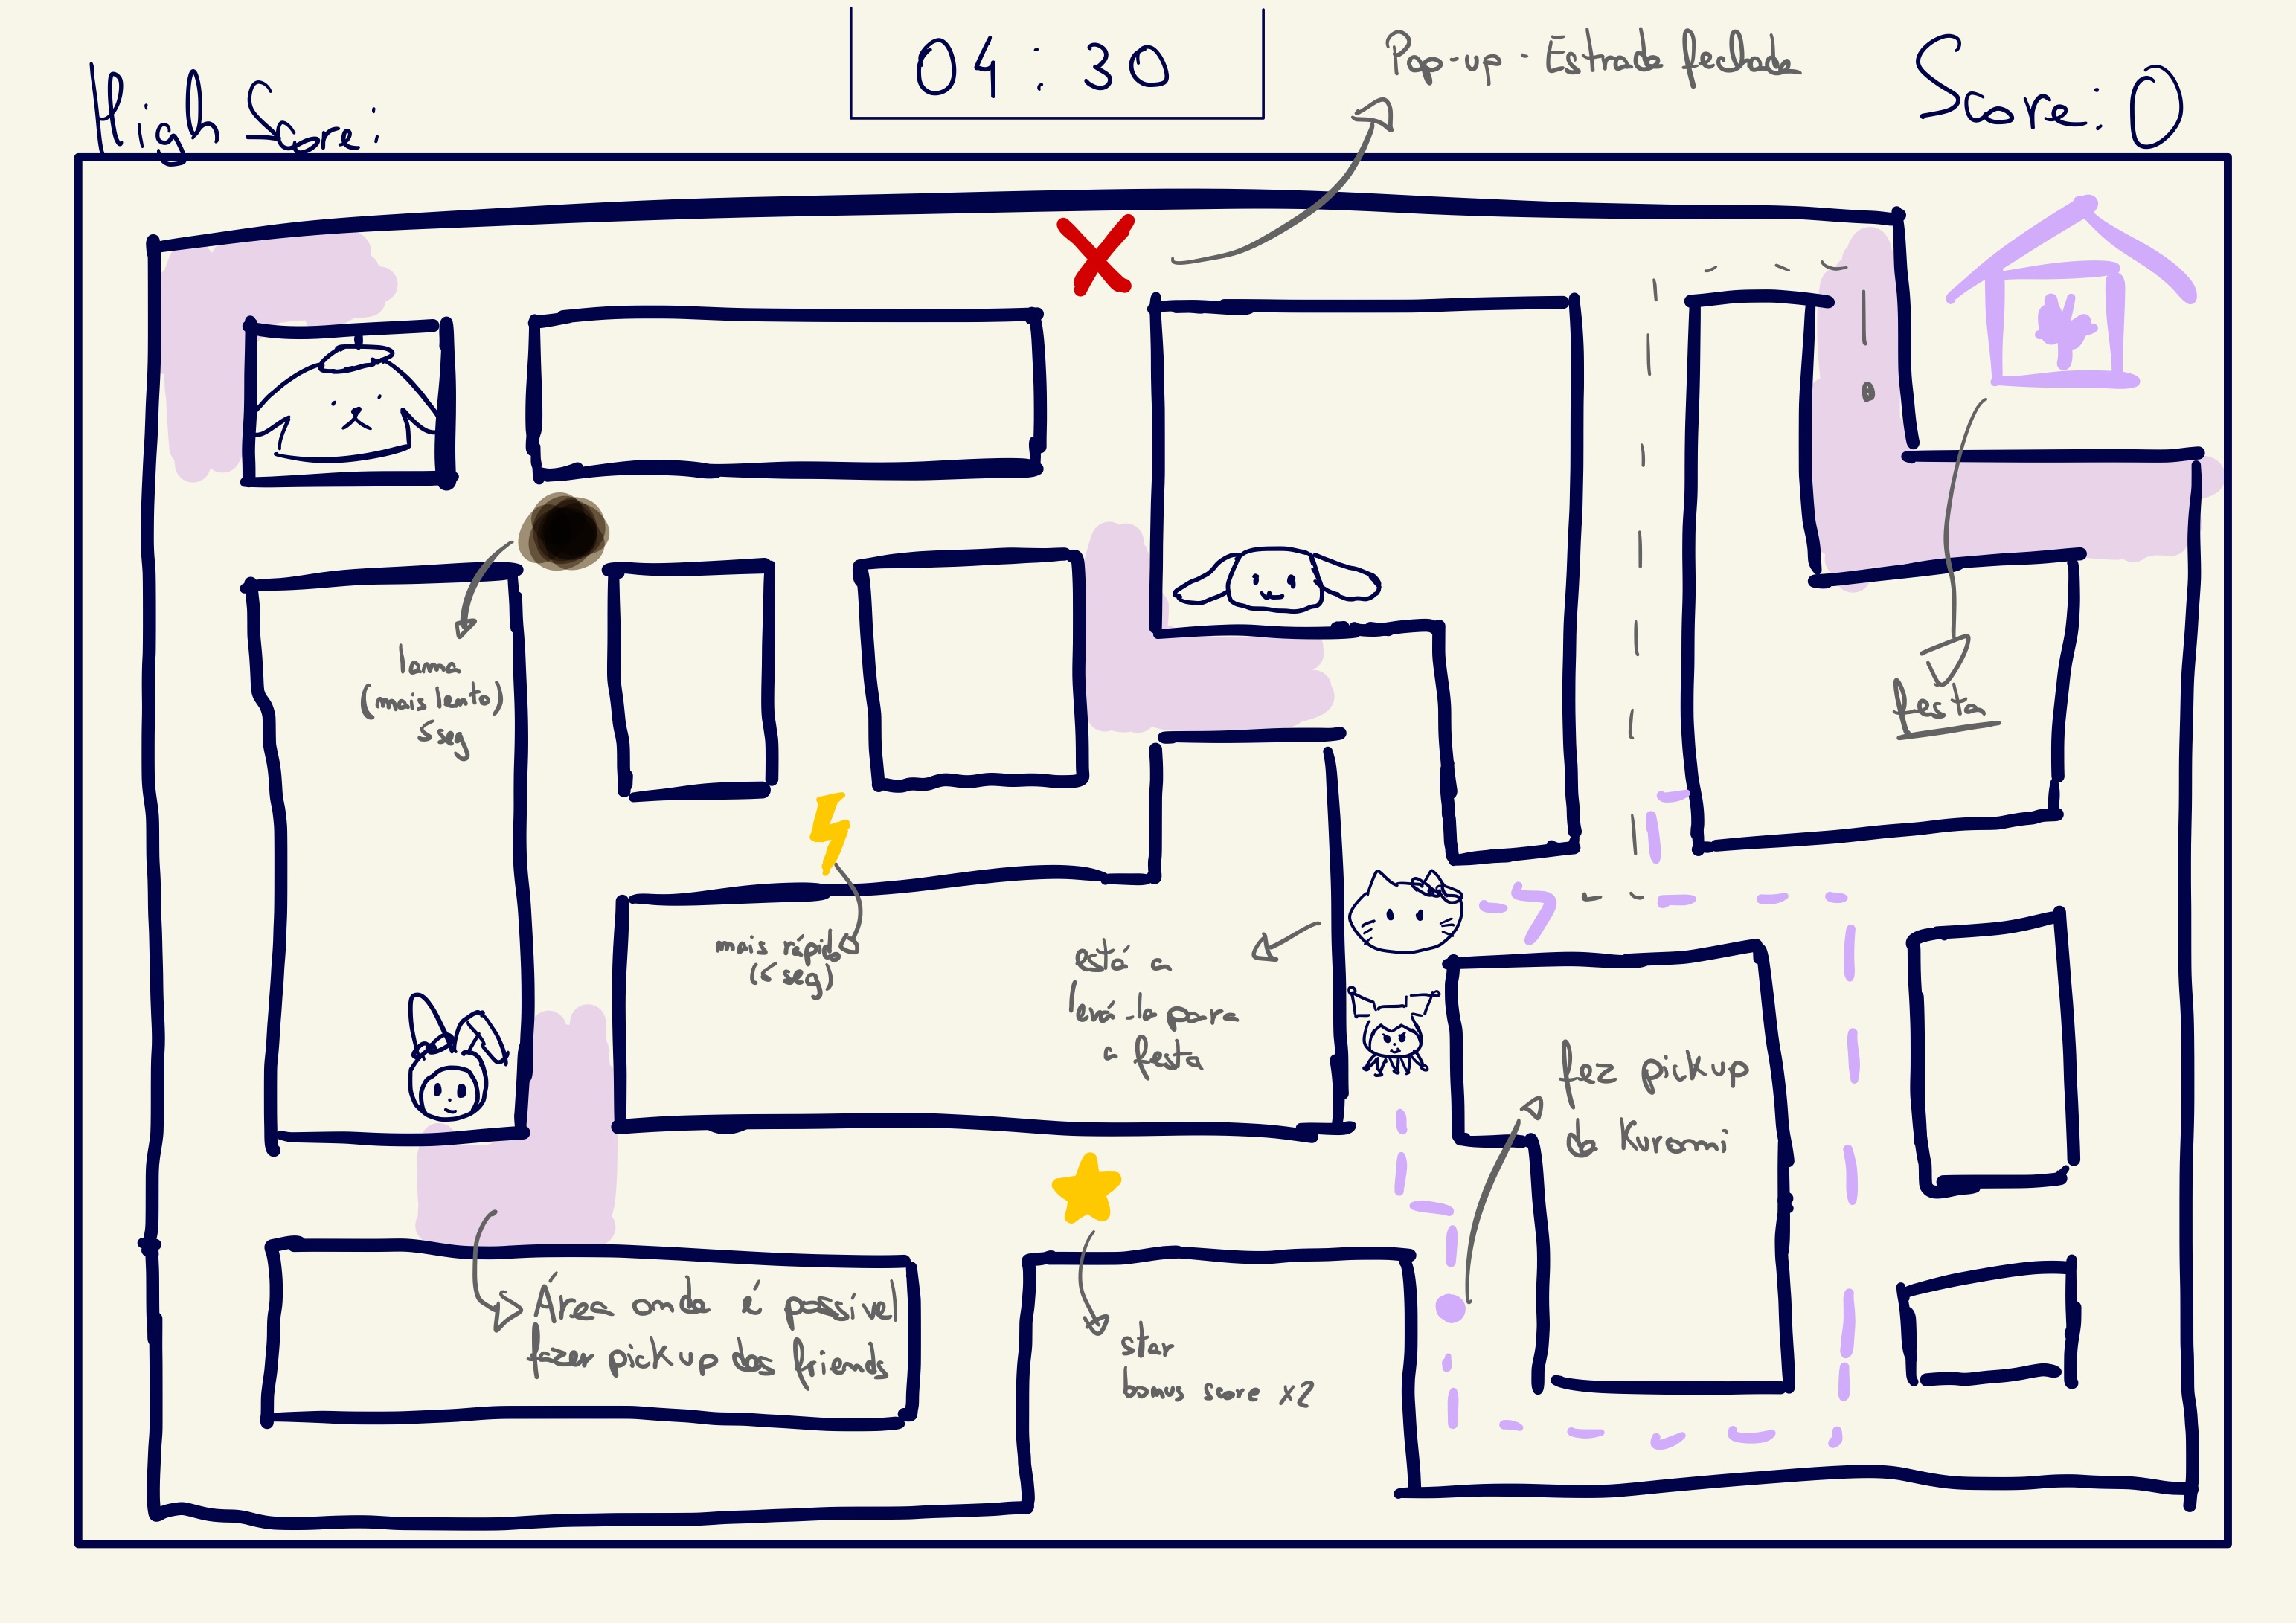 High Score:
04:30
Pop-up - Estrada fechada
Score: 0
lama
(mais lento)
5seg
festa
mais rápido
(5 seg)
está a
levá-lo para
a festa
fez pickup
da Kuromi
Área onde é possível
fazer pickup dos friends
star
bonus score x2